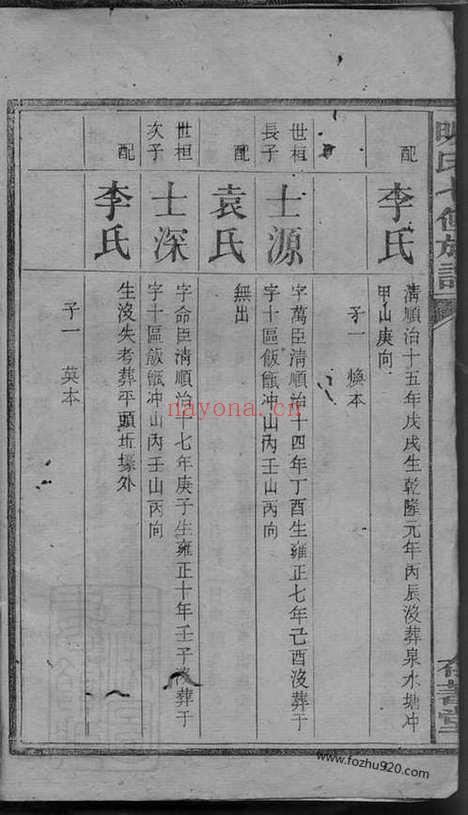 氏七修族譜
配
李氏
清順治十五年戊戌生乾隆元年丙辰沒葬泉水塘冲
甲山庚向
子一 煥本
世桓
長子
士源
字萬臣清順治十四年丁酉生雍正七年己酉沒葬于
字十區飯甑冲山內壬山丙向
配
袁氏
無出
世桓
次子
士深
字命臣清順治十七年庚子生雍正十年壬子沒葬于
字十區飯甑冲山內壬山丙向
配
李氏
生沒失考葬平頭坵壕外
子一 英本
nayona.cn
www.fozhu920.com